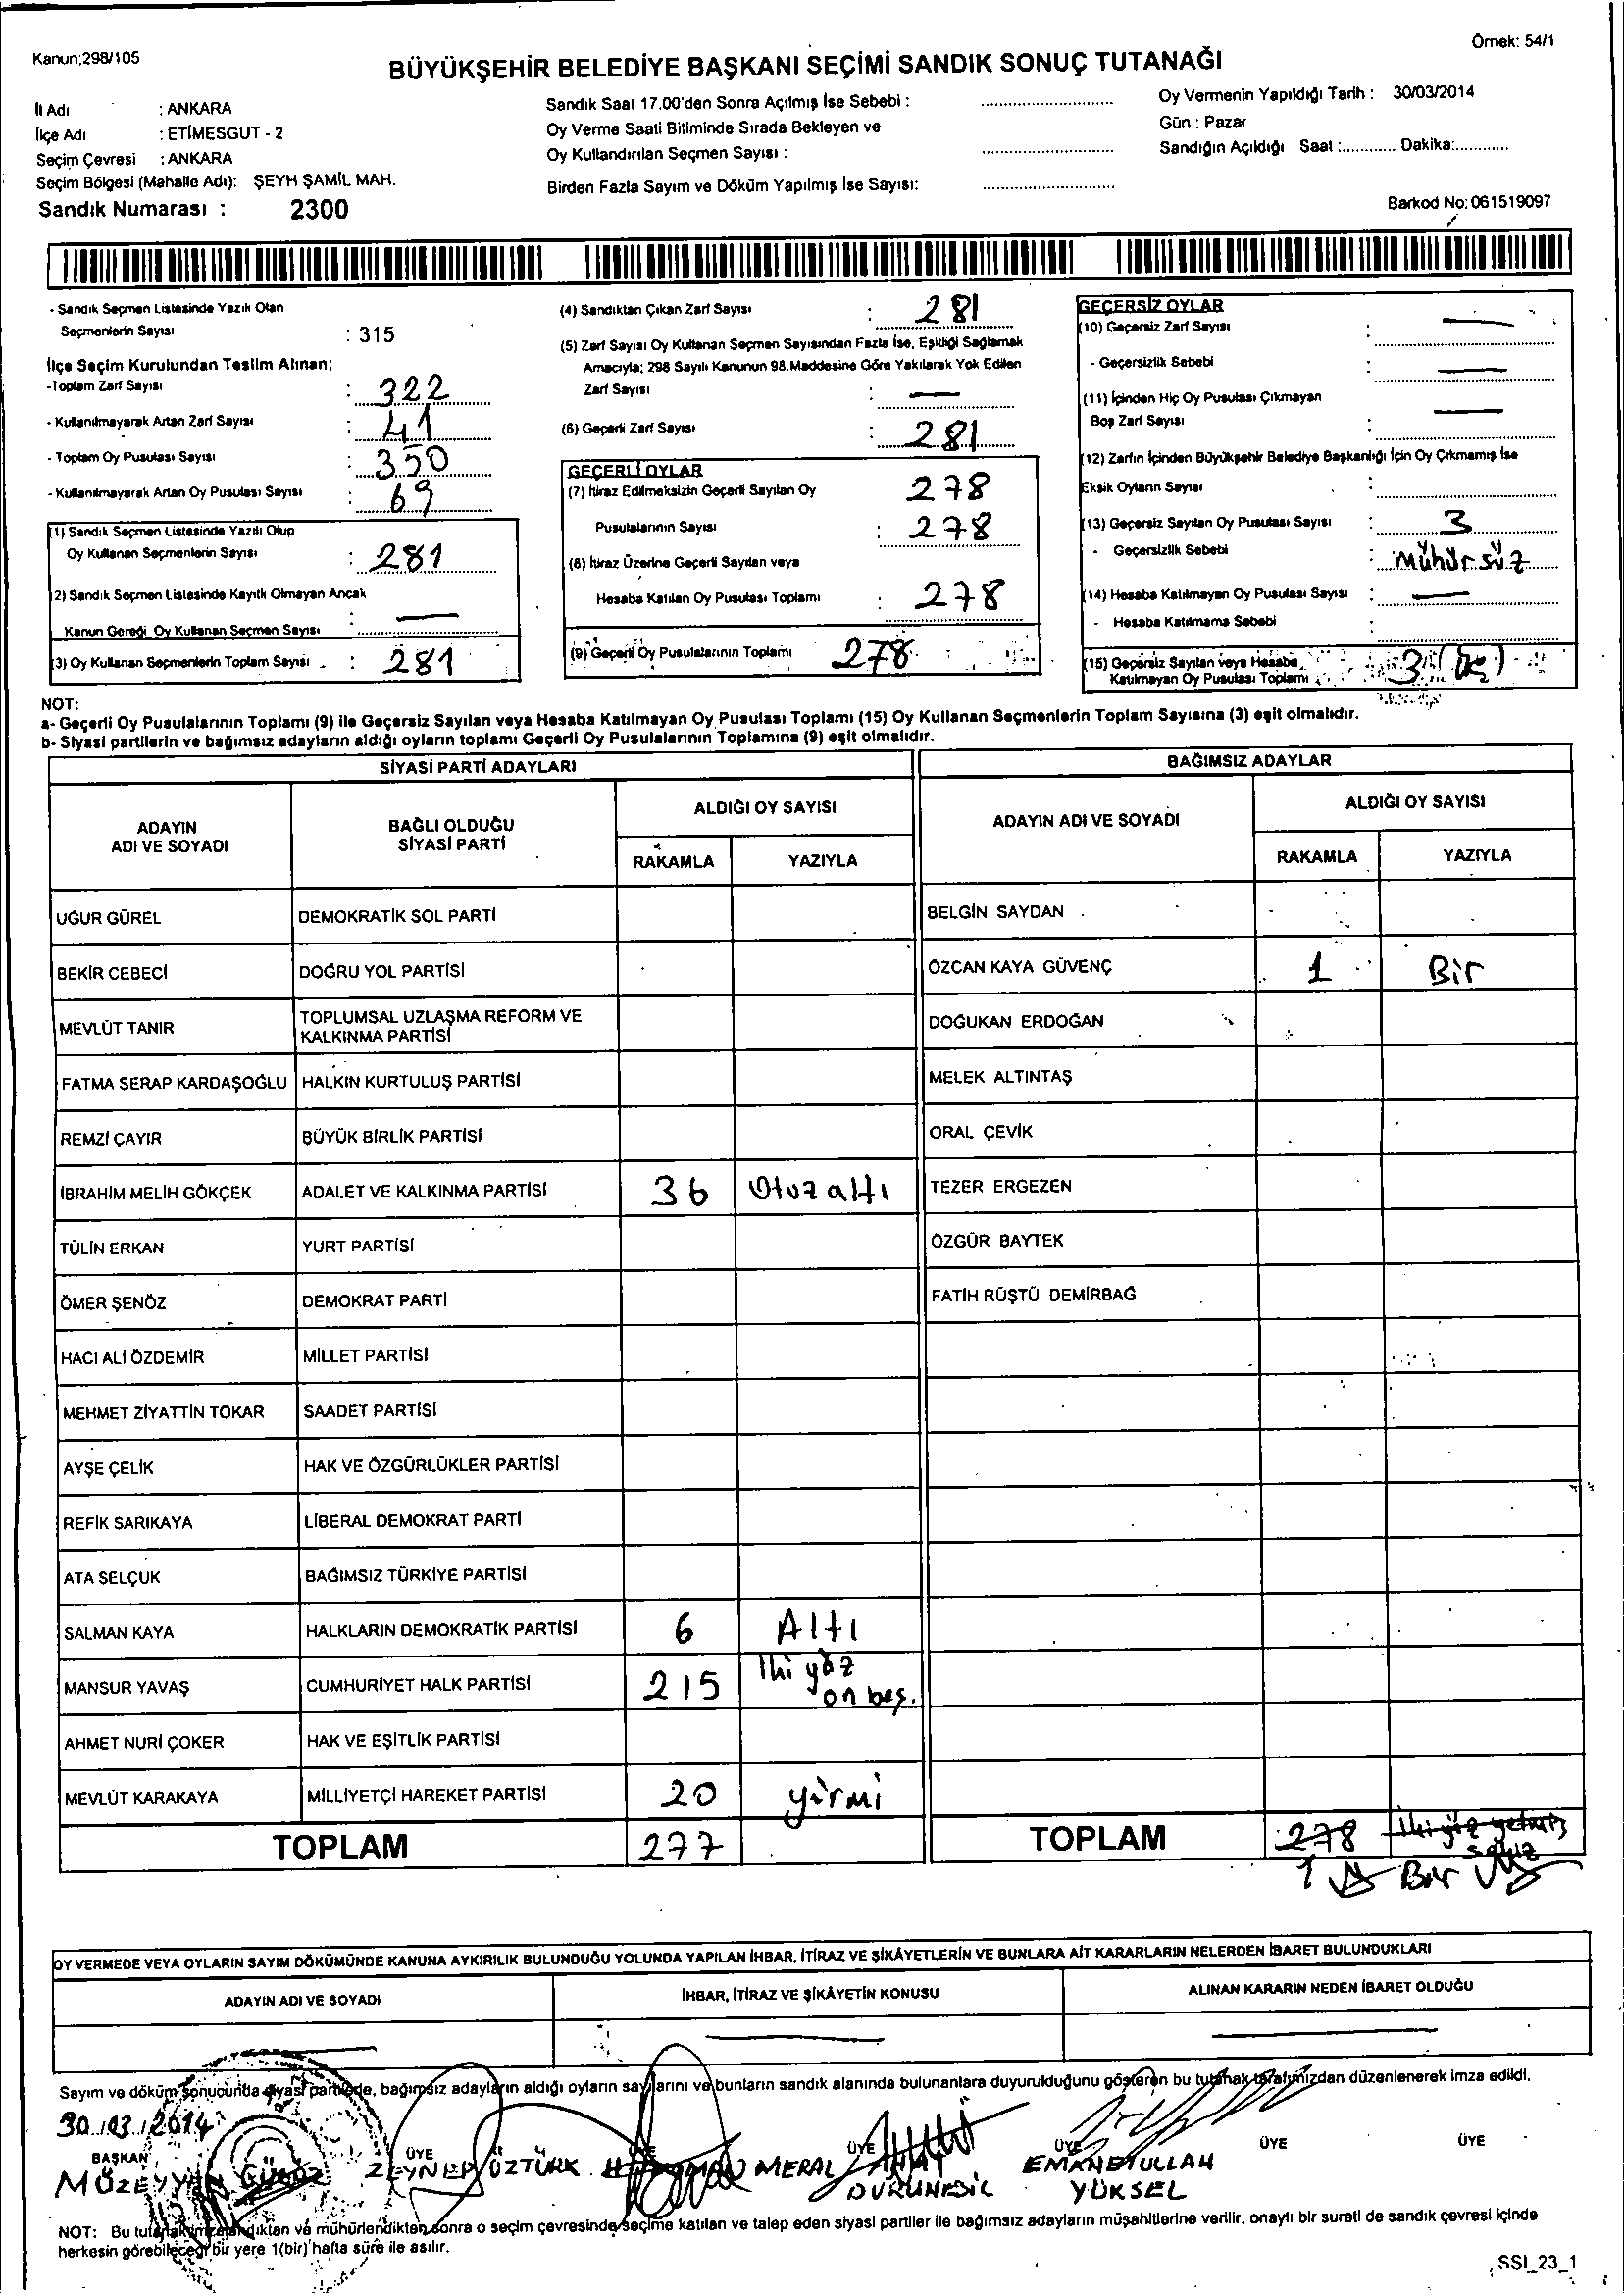 Kanun;298/105
Örnek: 54/1
BÜYÜKŞEHİR BELEDİYE BAŞKANI SEÇİMİ SANDIK SONUÇ TUTANAĞI
İl Adı : ANKARA
İlçe Adı : ETİMESGUT - 2
Seçim Çevresi : ANKARA
Seçim Bölgesi (Mahalle Adı): ŞEYH ŞAMİL MAH.
Sandık Numarası : 2300
Sandık Saat 17.00'den Sonra Açılmış İse Sebebi :
Oy Verme Saati Bitiminde Sırada Bekleyen ve
Oy Kullandırılan Seçmen Sayısı :
Birden Fazla Sayım ve Döküm Yapılmış İse Sayısı:
Oy Vermenin Yapıldığı Tarih : 30/03/2014
Gün : Pazar
Sandığın Açıldığı Saat :............ Dakika:............
Barkod No: 061519097
- Sandık Seçmen Listesinde Yazılı Olan
Seçmenlerin Sayısı : 315
İlçe Seçim Kurulundan Teslim Alınan;
-Toplam Zarf Sayısı : 322
- Kullanılmayarak Artan Zarf Sayısı : 41
- Toplam Oy Pusulası Sayısı : 350
- Kullanılmayarak Artan Oy Pusulası Sayısı : 69
(1) Sandık Seçmen Listesinde Yazılı Olup
Oy Kullanan Seçmenlerin Sayısı : 281
2) Sandık Seçmen Listesinde Kayıtlı Olmayan Ancak
Kanun Gereği Oy Kullanan Seçmen Sayısı : —
(3) Oy Kullanan Seçmenlerin Toplam Sayısı : 281
(4) Sandıktan Çıkan Zarf Sayısı : 281
(5) Zarf Sayısı Oy Kullanan Seçmen Sayısından Fazla İse, Eşitliği Sağlamak
Amacıyla; 298 Sayılı Kanunun 98.Maddesine Göre Yakılarak Yok Edilen
Zarf Sayısı : —
(6) Geçerli Zarf Sayısı : 281
GEÇERLİ OYLAR
(7) İtiraz Edilmeksizin Geçerli Sayılan Oy 278
Pusulalarının Sayısı : 278
(8) İtiraz Üzerine Geçerli Sayılan veya
Hesaba Katılan Oy Pusulası Toplamı : 278
(9) Geçerli Oy Pusulalarının Toplamı 278
GEÇERSİZ OYLAR
(10) Geçersiz Zarf Sayısı : —
- Geçersizlik Sebebi : —
(11) İçinden Hiç Oy Pusulası Çıkmayan
Boş Zarf Sayısı : —
(12) Zarfın İçinden Büyükşehir Belediye Başkanlığı İçin Oy Çıkmamış İse
Eksik Oyların Sayısı :
(13) Geçersiz Sayılan Oy Pusulası Sayısı : 3
- Geçersizlik Sebebi : Mühürsüz
(14) Hesaba Katılmayan Oy Pusulası Sayısı : —
- Hesaba Katılmama Sebebi :
(15) Geçersiz Sayılan veya Hesaba
Katılmayan Oy Pusulası Toplamı 3 (üç)
NOT:
a- Geçerli Oy Pusulalarının Toplamı (9) ile Geçersiz Sayılan veya Hesaba Katılmayan Oy Pusulası Toplamı (15) Oy Kullanan Seçmenlerin Toplam Sayısına (3) eşit olmalıdır.
b- Siyasi partilerin ve bağımsız adayların aldığı oyların toplamı Geçerli Oy Pusulalarının Toplamına (9) eşit olmalıdır.
SİYASİ PARTİ ADAYLARI
ADAYIN
ADI VE SOYADI
BAĞLI OLDUĞU
SİYASİ PARTİ
ALDIĞI OY SAYISI
RAKAMLA YAZIYLA
UĞUR GÜREL DEMOKRATİK SOL PARTİ
BEKİR CEBECİ DOĞRU YOL PARTİSİ
MEVLÜT TANIR TOPLUMSAL UZLAŞMA REFORM VE
KALKINMA PARTİSİ
FATMA SERAP KARDAŞOĞLU HALKIN KURTULUŞ PARTİSİ
REMZİ ÇAYIR BÜYÜK BİRLİK PARTİSİ
İBRAHİM MELİH GÖKÇEK ADALET VE KALKINMA PARTİSİ 36 Otuzaltı
TÜLİN ERKAN YURT PARTİSİ
ÖMER ŞENÖZ DEMOKRAT PARTİ
HACI ALİ ÖZDEMİR MİLLET PARTİSİ
MEHMET ZİYATTİN TOKAR SAADET PARTİSİ
AYŞE ÇELİK HAK VE ÖZGÜRLÜKLER PARTİSİ
REFİK SARIKAYA LİBERAL DEMOKRAT PARTİ
ATA SELÇUK BAĞIMSIZ TÜRKİYE PARTİSİ
SALMAN KAYA HALKLARIN DEMOKRATİK PARTİSİ 6 Altı
MANSUR YAVAŞ CUMHURİYET HALK PARTİSİ 215 İki yüz
on beş.
AHMET NURİ ÇOKER HAK VE EŞİTLİK PARTİSİ
MEVLÜT KARAKAYA MİLLİYETÇİ HAREKET PARTİSİ 20 yirmi
TOPLAM 277
BAĞIMSIZ ADAYLAR
ADAYIN ADI VE SOYADI
ALDIĞI OY SAYISI
RAKAMLA YAZIYLA
BELGİN SAYDAN
ÖZCAN KAYA GÜVENÇ 1 Bir
DOĞUKAN ERDOĞAN
MELEK ALTINTAŞ
ORAL ÇEVİK
TEZER ERGEZEN
ÖZGÜR BAYTEK
FATİH RÜŞTÜ DEMİRBAĞ
TOPLAM 278 iki yüz yetmiş
sekiz
1 Bir
OY VERMEDE VEYA OYLARIN SAYIM DÖKÜMÜNDE KANUNA AYKIRILIK BULUNDUĞU YOLUNDA YAPILAN İHBAR, İTİRAZ VE ŞİKÂYETLERİN VE BUNLARA AİT KARARLARIN NELERDEN İBARET BULUNDUKLARI
ADAYIN ADI VE SOYADI İHBAR, İTİRAZ VE ŞİKÂYETİN KONUSU ALINAN KARARIN NEDEN İBARET OLDUĞU
Sayım ve döküm sonucunda siyasi partilerde, bağımsız adayların aldığı oyların sayılarını ve bunların sandık alanında bulunanlara duyurulduğunu gösteren bu tutanak tarafımızdan düzenlenerek imza edildi.
30/03/2014
BAŞKAN ÜYE ÜYE ÜYE ÜYE ÜYE
MÜZEYYEN ZEYNEP ÖZTÜRK MERAL EMANETULLAH
YÜKSEL
NOT: Bu tutanak imzalandıktan ve mühürlendikten sonra o seçim çevresinde seçime katılan ve talep eden siyasi partiler ile bağımsız adayların müşahitlerine verilir, onaylı bir sureti de sandık çevresi içinde
herkesin görebileceği bir yere 1(bir) hafta süre ile asılır.
SSI_23_1